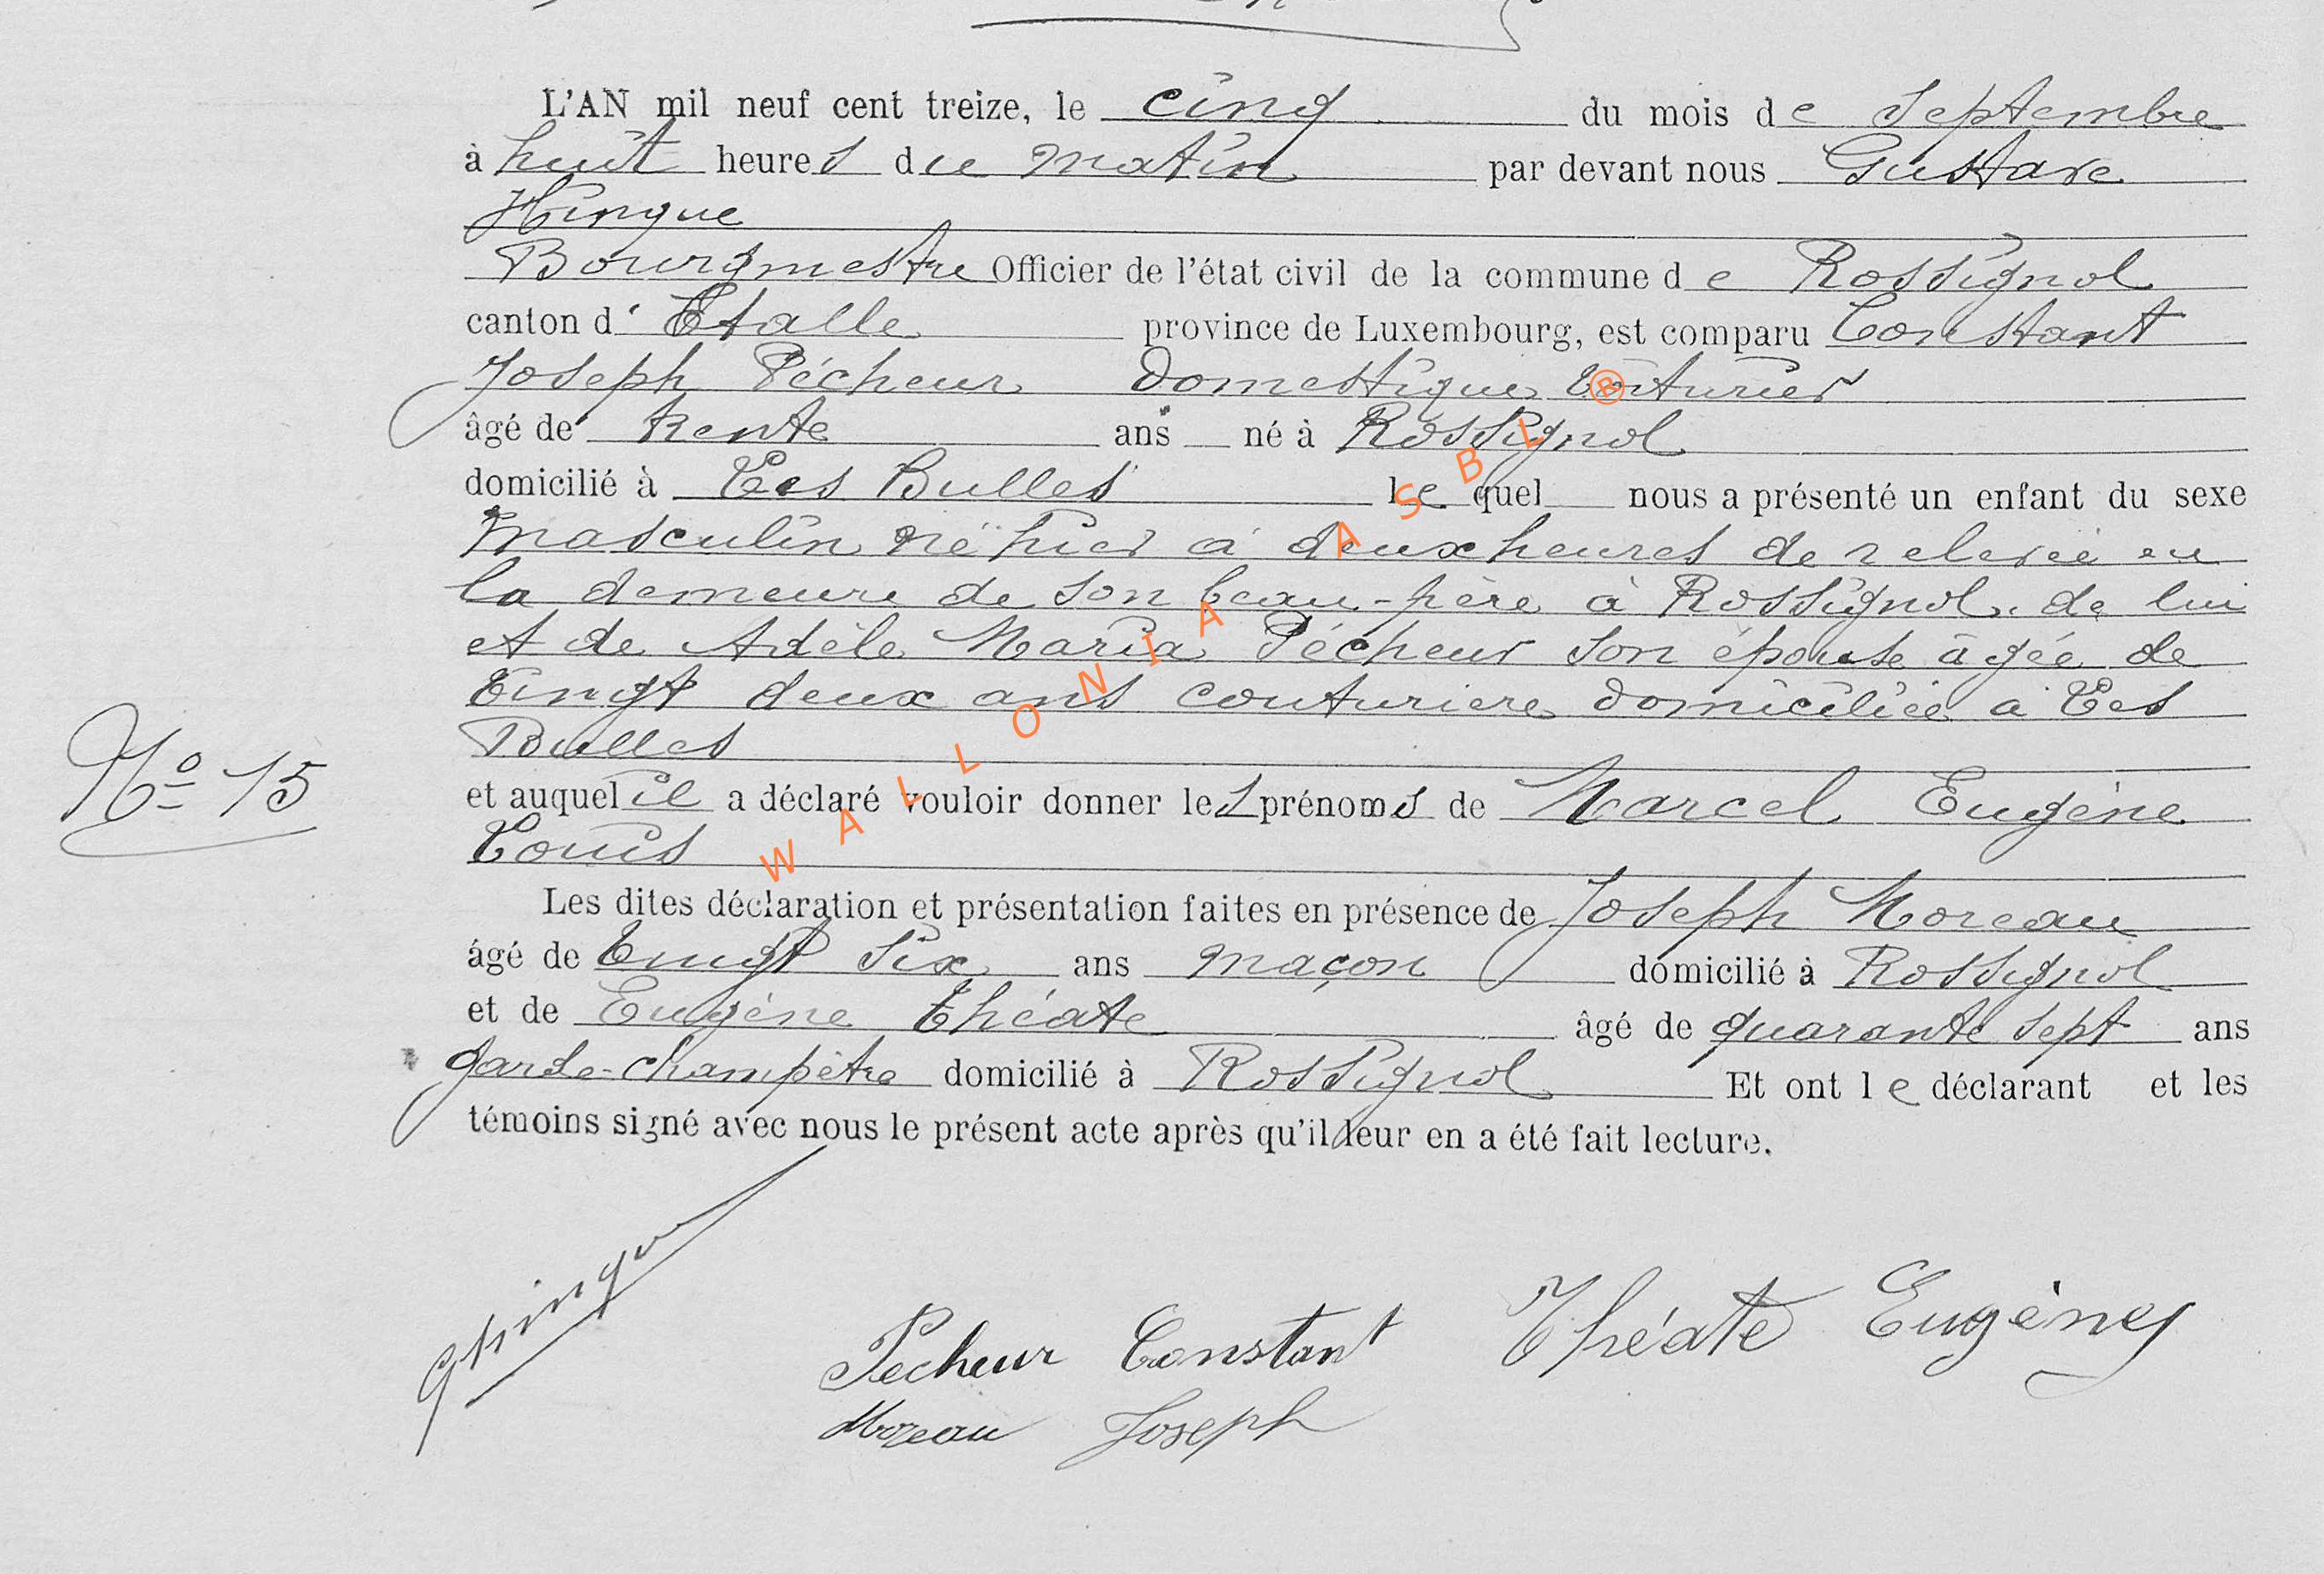 L'AN mil neuf cent treize, le cinq du mois de Septembre
à huit heures du matin par devant nous Gustave
Hinque
Bourgmestre Officier de l'état civil de la commune de Rossignol
canton d' Etalle province de Luxembourg, est comparu Constant
Joseph Pécheur Domestique Voiturier
âgé de trente ans né à Rossignol
domicilié à Les Bulles lequel nous a présenté un enfant du sexe
masculin né hier à deux heures de relevée en
la demeure de son beau-père à Rossignol, de lui
et de Adèle Maria Pécheur son épouse âgée de
Vingt deux ans couturière domiciliée à Les
Bulles
N° 15
et auquel il a déclaré vouloir donner les prénoms de Marcel Eugène
Louis
Les dites déclaration et présentation faites en présence de Joseph Moreau
âgé de Vingt Six ans maçon domicilié à Rossignol
et de Eugène Théate âgé de quarante sept ans
garde-champêtre domicilié à Rossignol Et ont le déclarant et les
témoins signé avec nous le présent acte après qu'il leur en a été fait lecture.
GHinque
Pécheur Constant Théate Eugène
Moreau Joseph
WALLONIA ASBL ®